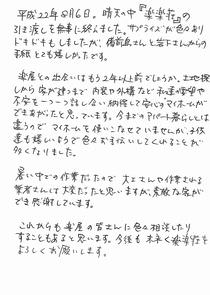 平成22年8月6日。晴天の中「楽楽荘」の
引き渡しを無事に終えました。サプライズが色々あり
ドキドキもしましたが、備前島さんと岩下さんからの
手紙 とても嬉しかったです。
楽屋との出会いはもう2年以上前でしょうか。土地探
しから家が建つまで 内容や外構など 私達の要望や
不安を一つ一つ話し合い納得して安心のマイホームが
できたと思っています。今までのアパート暮らしとは
違うので マイホームを使いこなせていませんが、子供
達も嬉しいようで色々お手伝いしてくれることが
多くなりました。
暑い中での作業だったので 大工さんや作業される
業者さんは大変だったと思いますが、素敵な家が
でき感謝しています。
これからも楽屋の皆さんに色々相談したり
することもあると思います。今後も末永く楽楽荘を
よろしくお願いします。